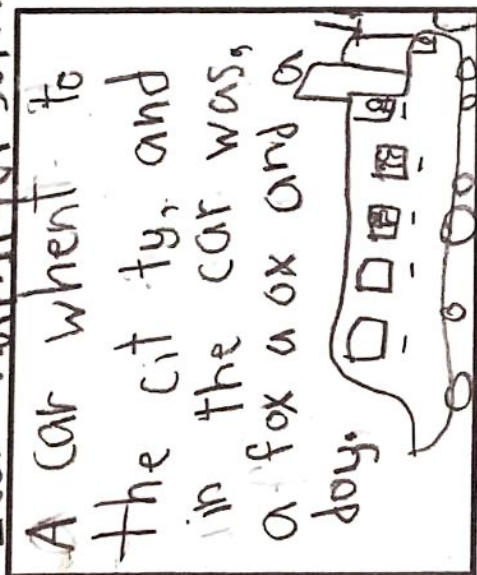 A car whent to
the cit ty, and
in the car was,
a fox a ox and a
doy.